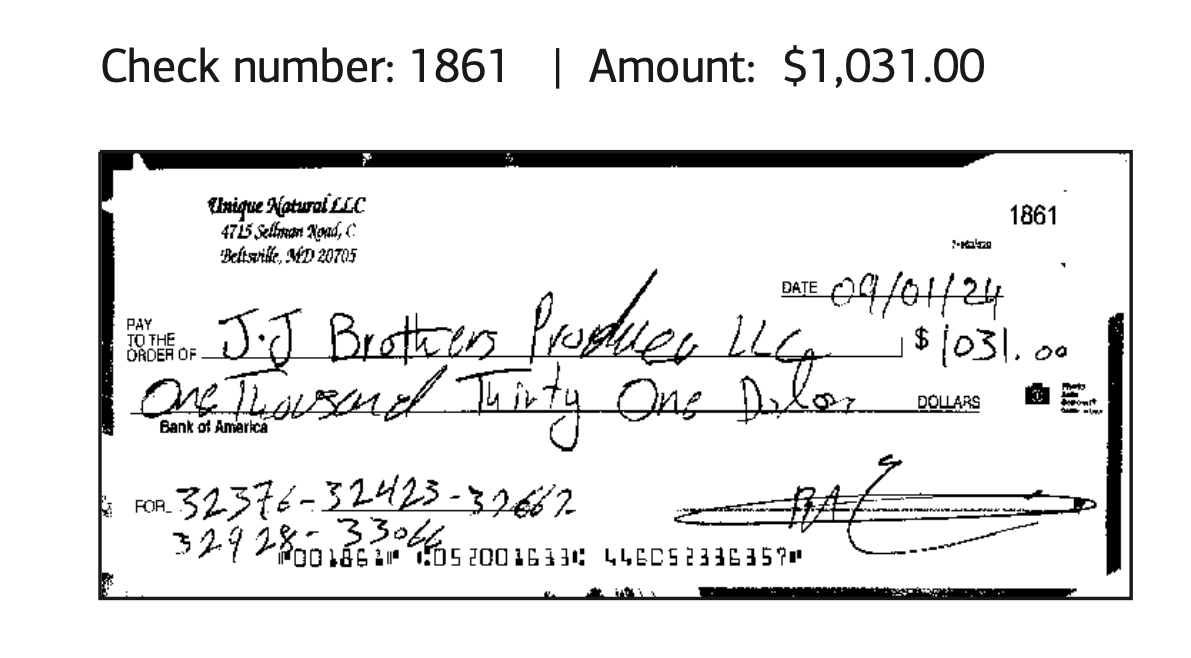 Check number: 1861 | Amount: $1,031.00
Unique Natural LLC
4715 Sellman Road, C
Beltsville, MD 20705
1861
DATE 09/01/24
PAY
TO THE
ORDER OF J.J Brothers Produce LLC $ 1031.00
One Thousand Thirty One Dolor DOLLARS
Bank of America
FOR 32376-32423-32662
32928-33066
⑈001861⑈ ⑆052001633⑆ 446052336357⑈